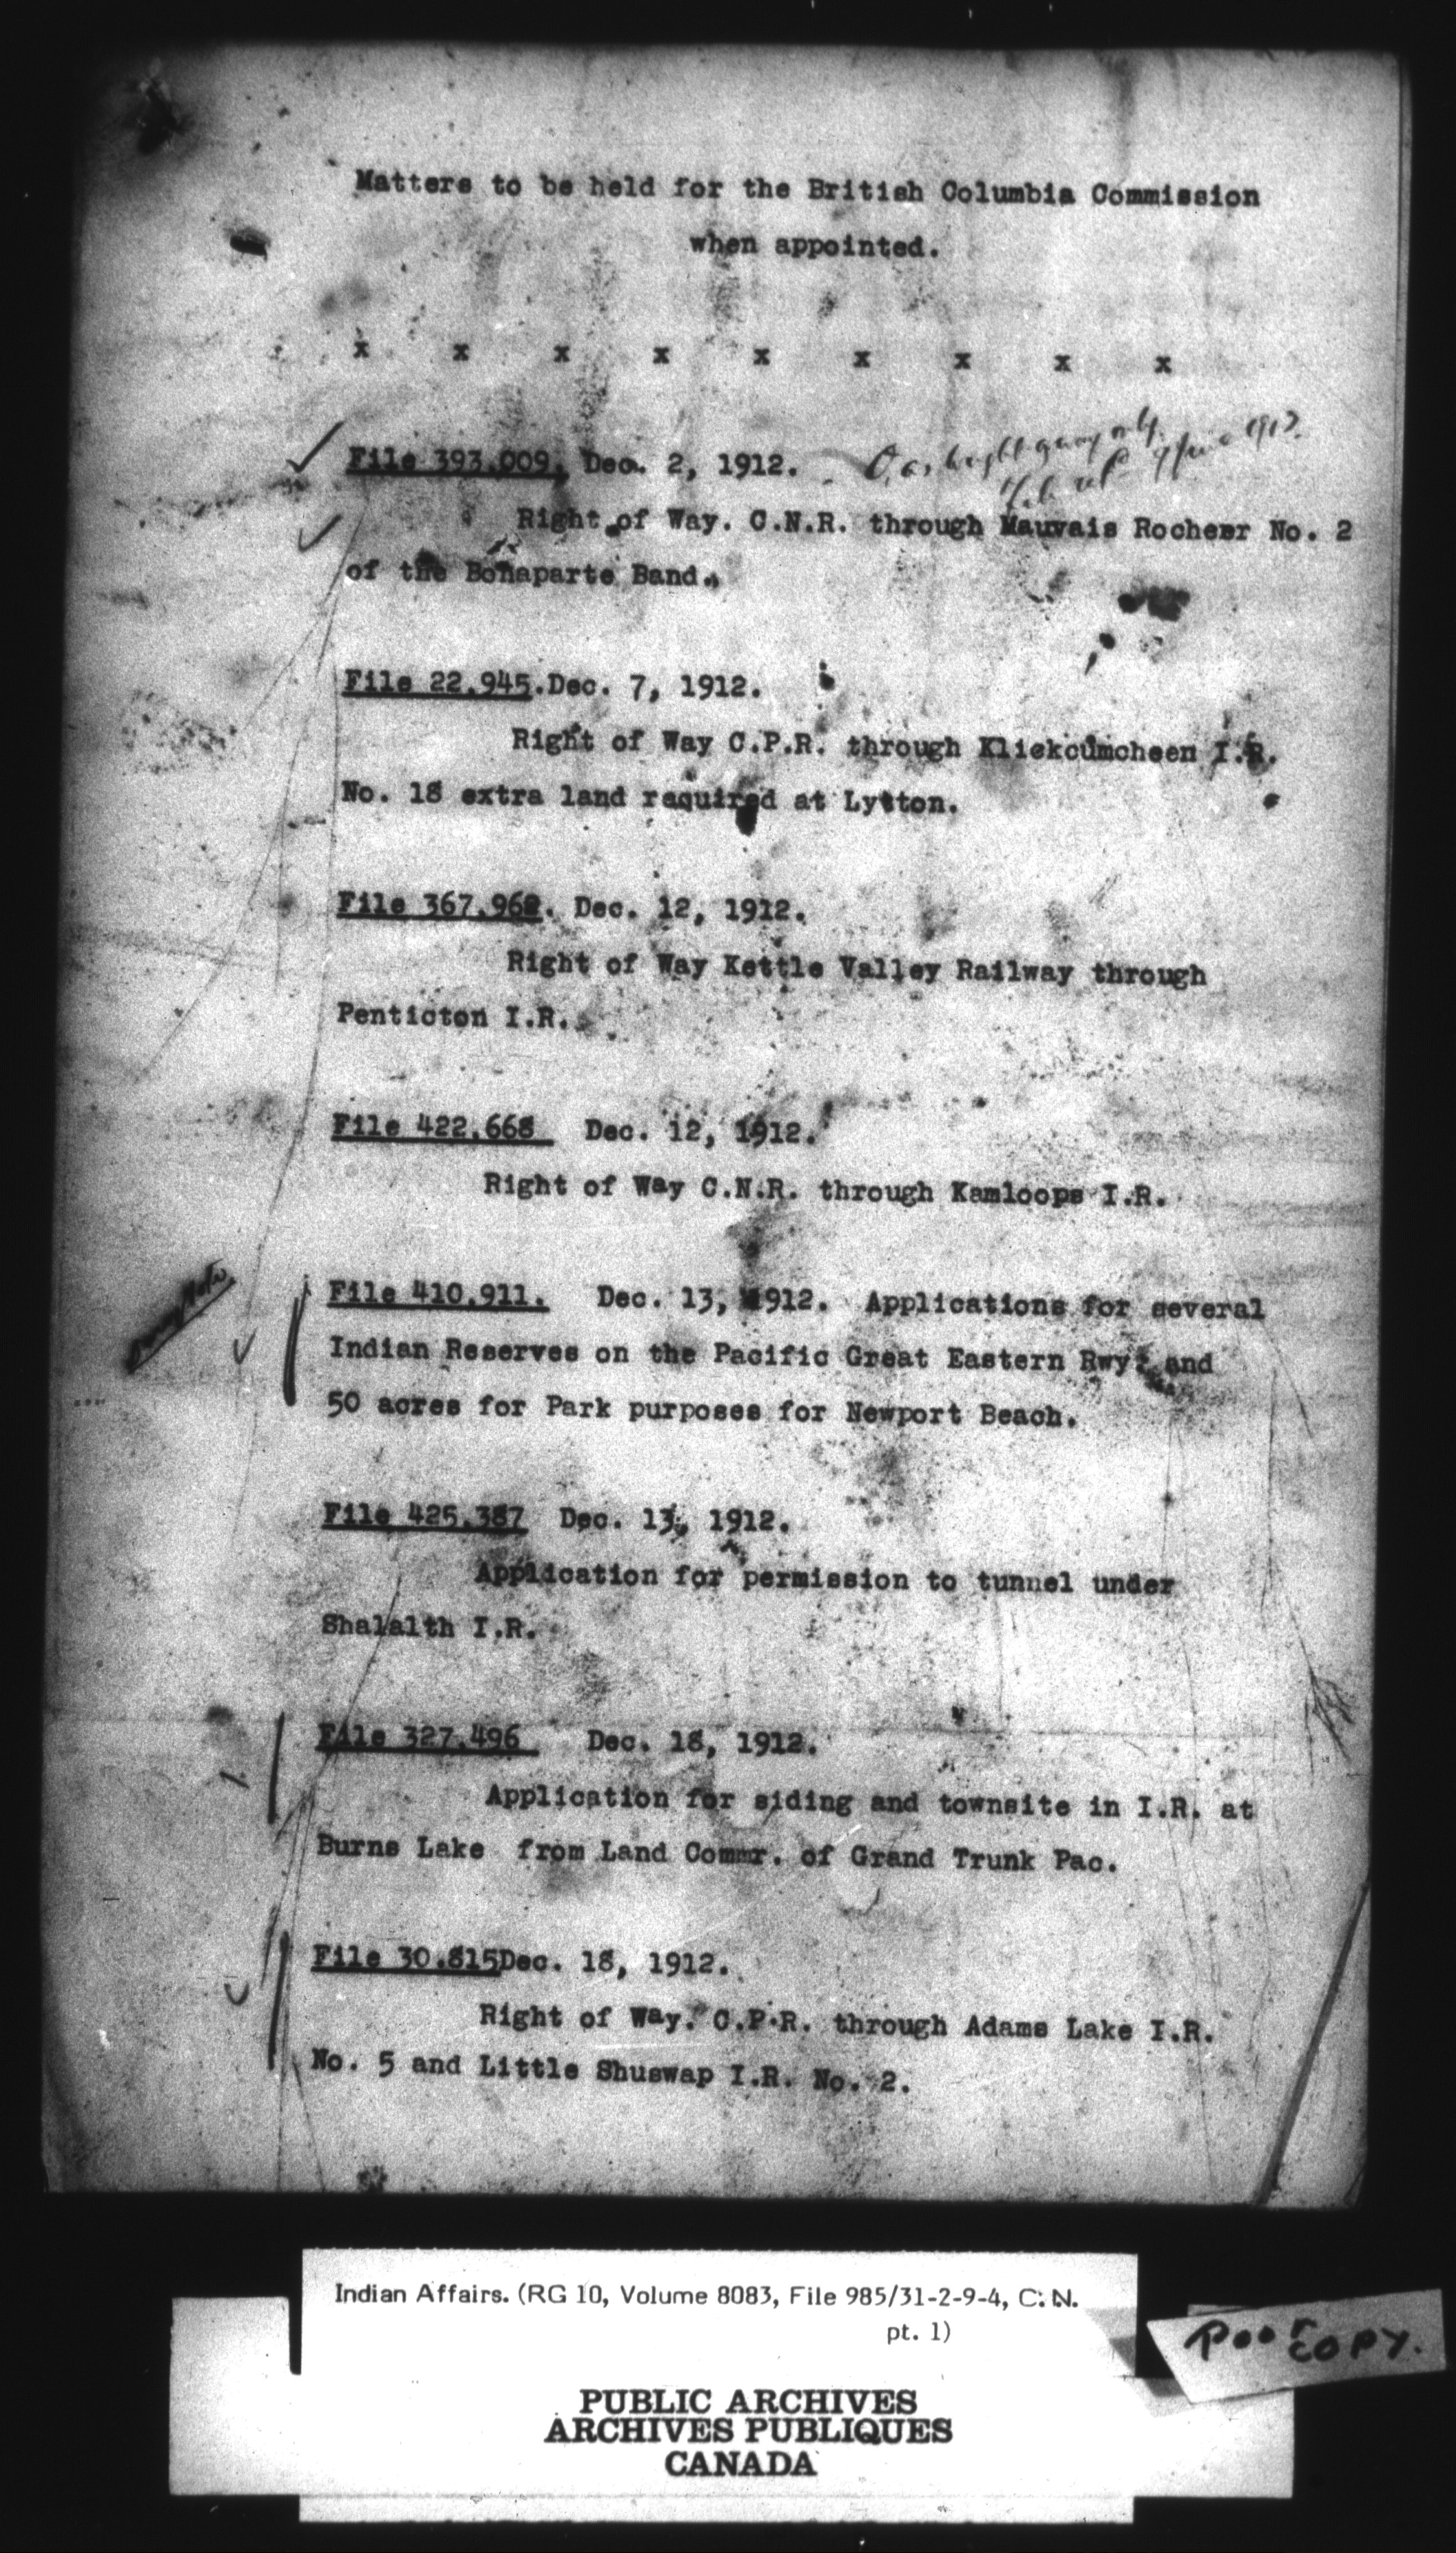 Matters to be held for the British Columbia Commission
when appointed.
x x x x x x x x x
File 393,009, Dec. 2, 1912.
1913.
Right of Way. C.N.R. through Mauvais Rocher No. 2
of the Bonaparte Band.
File 22,945.Dec. 7, 1912.
Right of Way C.P.R. through Kliekcumcheen I.R.
No. 18 extra land required at Lytton.
File 367,962. Dec. 12, 1912.
Right of Way Kettle Valley Railway through
Penticton I.R.
File 422,668 Dec. 12, 1912.
Right of Way C.N.R. through Kamloops I.R.
File 410,911. Dec. 13, 1912. Applications for several
Indian Reserves on the Pacific Great Eastern Rwy. and
50 acres for Park purposes for Newport Beach.
File 425,387 Dec. 13, 1912.
Application for permission to tunnel under
Shalalth I.R.
File 327,496 Dec. 18, 1912.
Application for siding and townsite in I.R. at
Burns Lake from Land Commr. of Grand Trunk Pac.
File 30,815Dec. 18, 1912.
Right of Way. C.P.R. through Adams Lake I.R.
No. 5 and Little Shuswap I.R. No. 2.
Indian Affairs. (RG 10, Volume 8083, File 985/31-2-9-4, C.N.
pt. 1)
POOR COPY.
PUBLIC ARCHIVES
ARCHIVES PUBLIQUES
CANADA